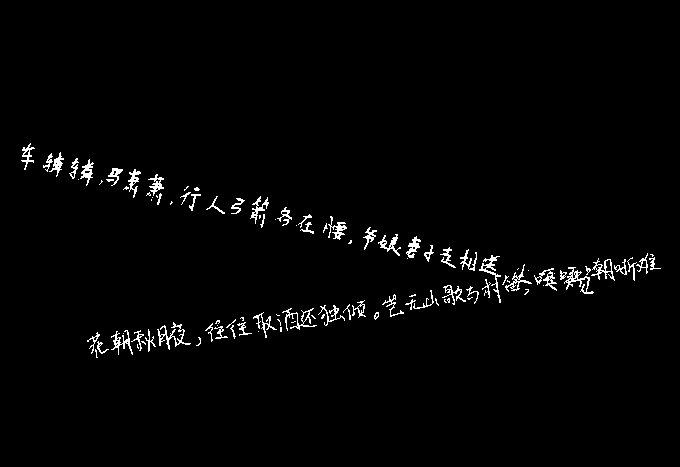 车辚辚,马萧萧,行人弓箭各在腰,爷娘妻子走相送
花朝秋月夜,往往取酒还独倾。岂无山歌与村笛,呕哑嘲哳难